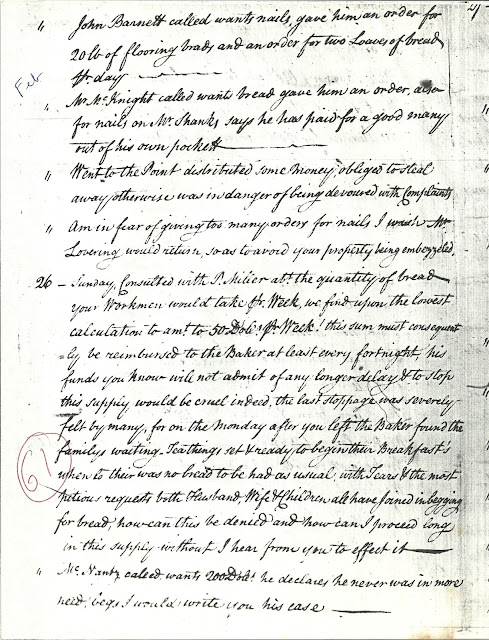 4
" John Barnett called wants nails, gave him an order for
20 lb of flooring brads and an order for two Loaves of bread
Pr. day
Feb
" Mr. McKnight called wants bread gave him an order, also
for nails on Mr. Shanks, says he has paid for a good many
out of his own pockett
" Went to the Point distributed some money, obliged to steal
away otherwise was in danger of being devoured with Complaints
" Am in fear of giving too many orders for nails I wish Mr.
Lovering would return, so as to avoid your property being embezzeled,
26 – Sunday, Consulted with P. Miller abt. the quantity of bread
your Workmen would take Pr. Week, we find upon the lowest
calculation to amt. to 50 Dols. Pr. Week. this sum must consequent
=ly be reimbursed to the Baker at least every fortnight, his
funds you know will not admit of any longer delay & to stop
this supply would be cruel indeed, the last stoppage was severely
felt by many, for on the Monday after you left the Baker found the
familys waiting. Tea things set & ready to begin their Breakfast's
61
when to their was no bread to be had as usual, with Tears & the most
pitious requests both Husband, Wife & Children all have joined in begging
for bread, how can this be denied and how can I proceed long
in this supply without I hear from you to effect it
" Mr. Vantz called wants 200 Dols. he declares he never was in more
need, begs I would write you his case